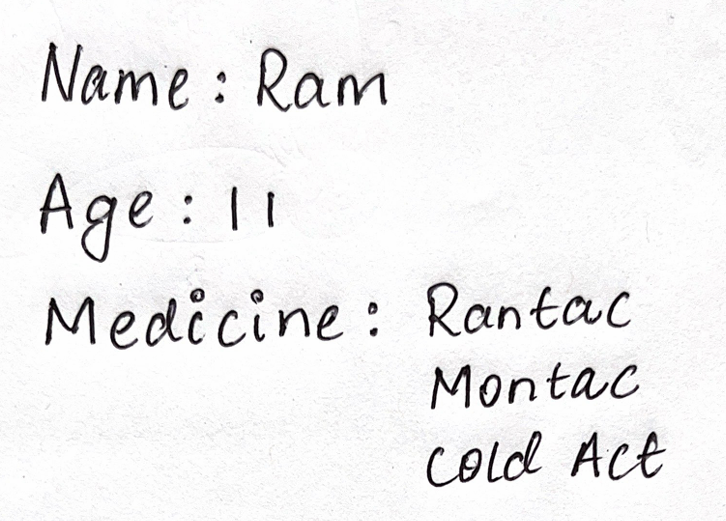 Name : Ram
Age : 11
Medicine : Rantac
Montac
Cold Act